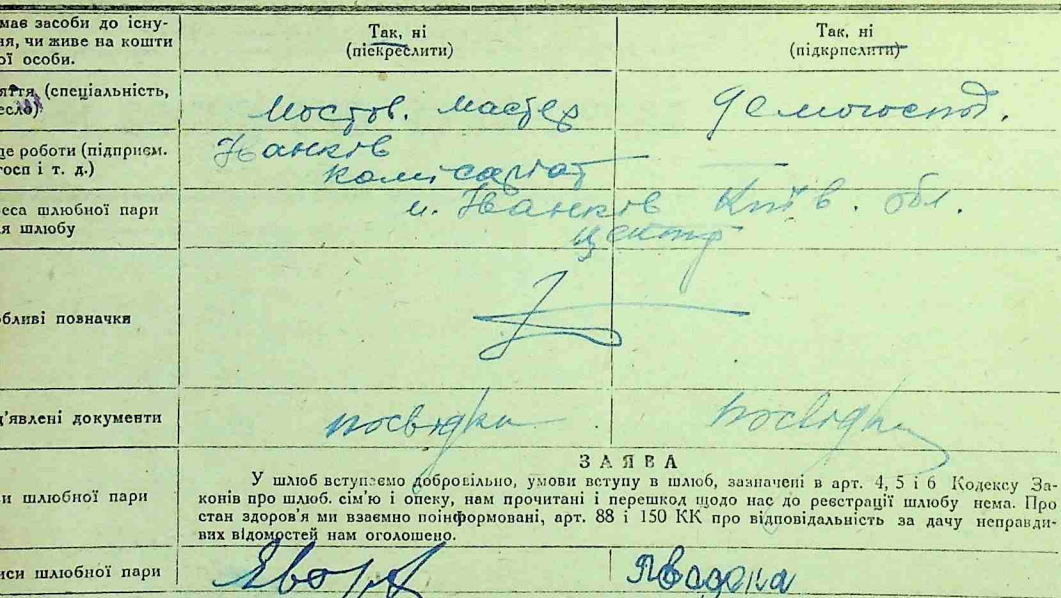 має засоби до існу-
ня, чи живе на кошти
ої особи.
Так, ні
(піскреслити)
Так, ні
(підкрпслити)
яття (спеціальність,
есло)
Мостов. мастер
Домогоспод.
це роботи (підприєм.
госп і т. д.)
Іванків
комісаріат
еса шлюбної пари
я шлюбу
м. Іванків Київ. обл.
центр
бливі позначки
д'явлені документи
посвідка
посвідка
ЗАЯВА
и шлюбної пари
У шлюб вступаємо добровільно, умови вступу в шлюб, зазначені в арт. 4, 5 і 6 Кодексу За-
конів про шлюб. сім'ю і опеку, нам прочитані і перешкод щодо нас до реєстрації шлюбу нема. Про
стан здоров'я ми взаємно поінформовані, арт. 88 і 150 КК про відповідальність за дачу неправди-
вих відомостей нам оголошено.
иси шлюбної пари